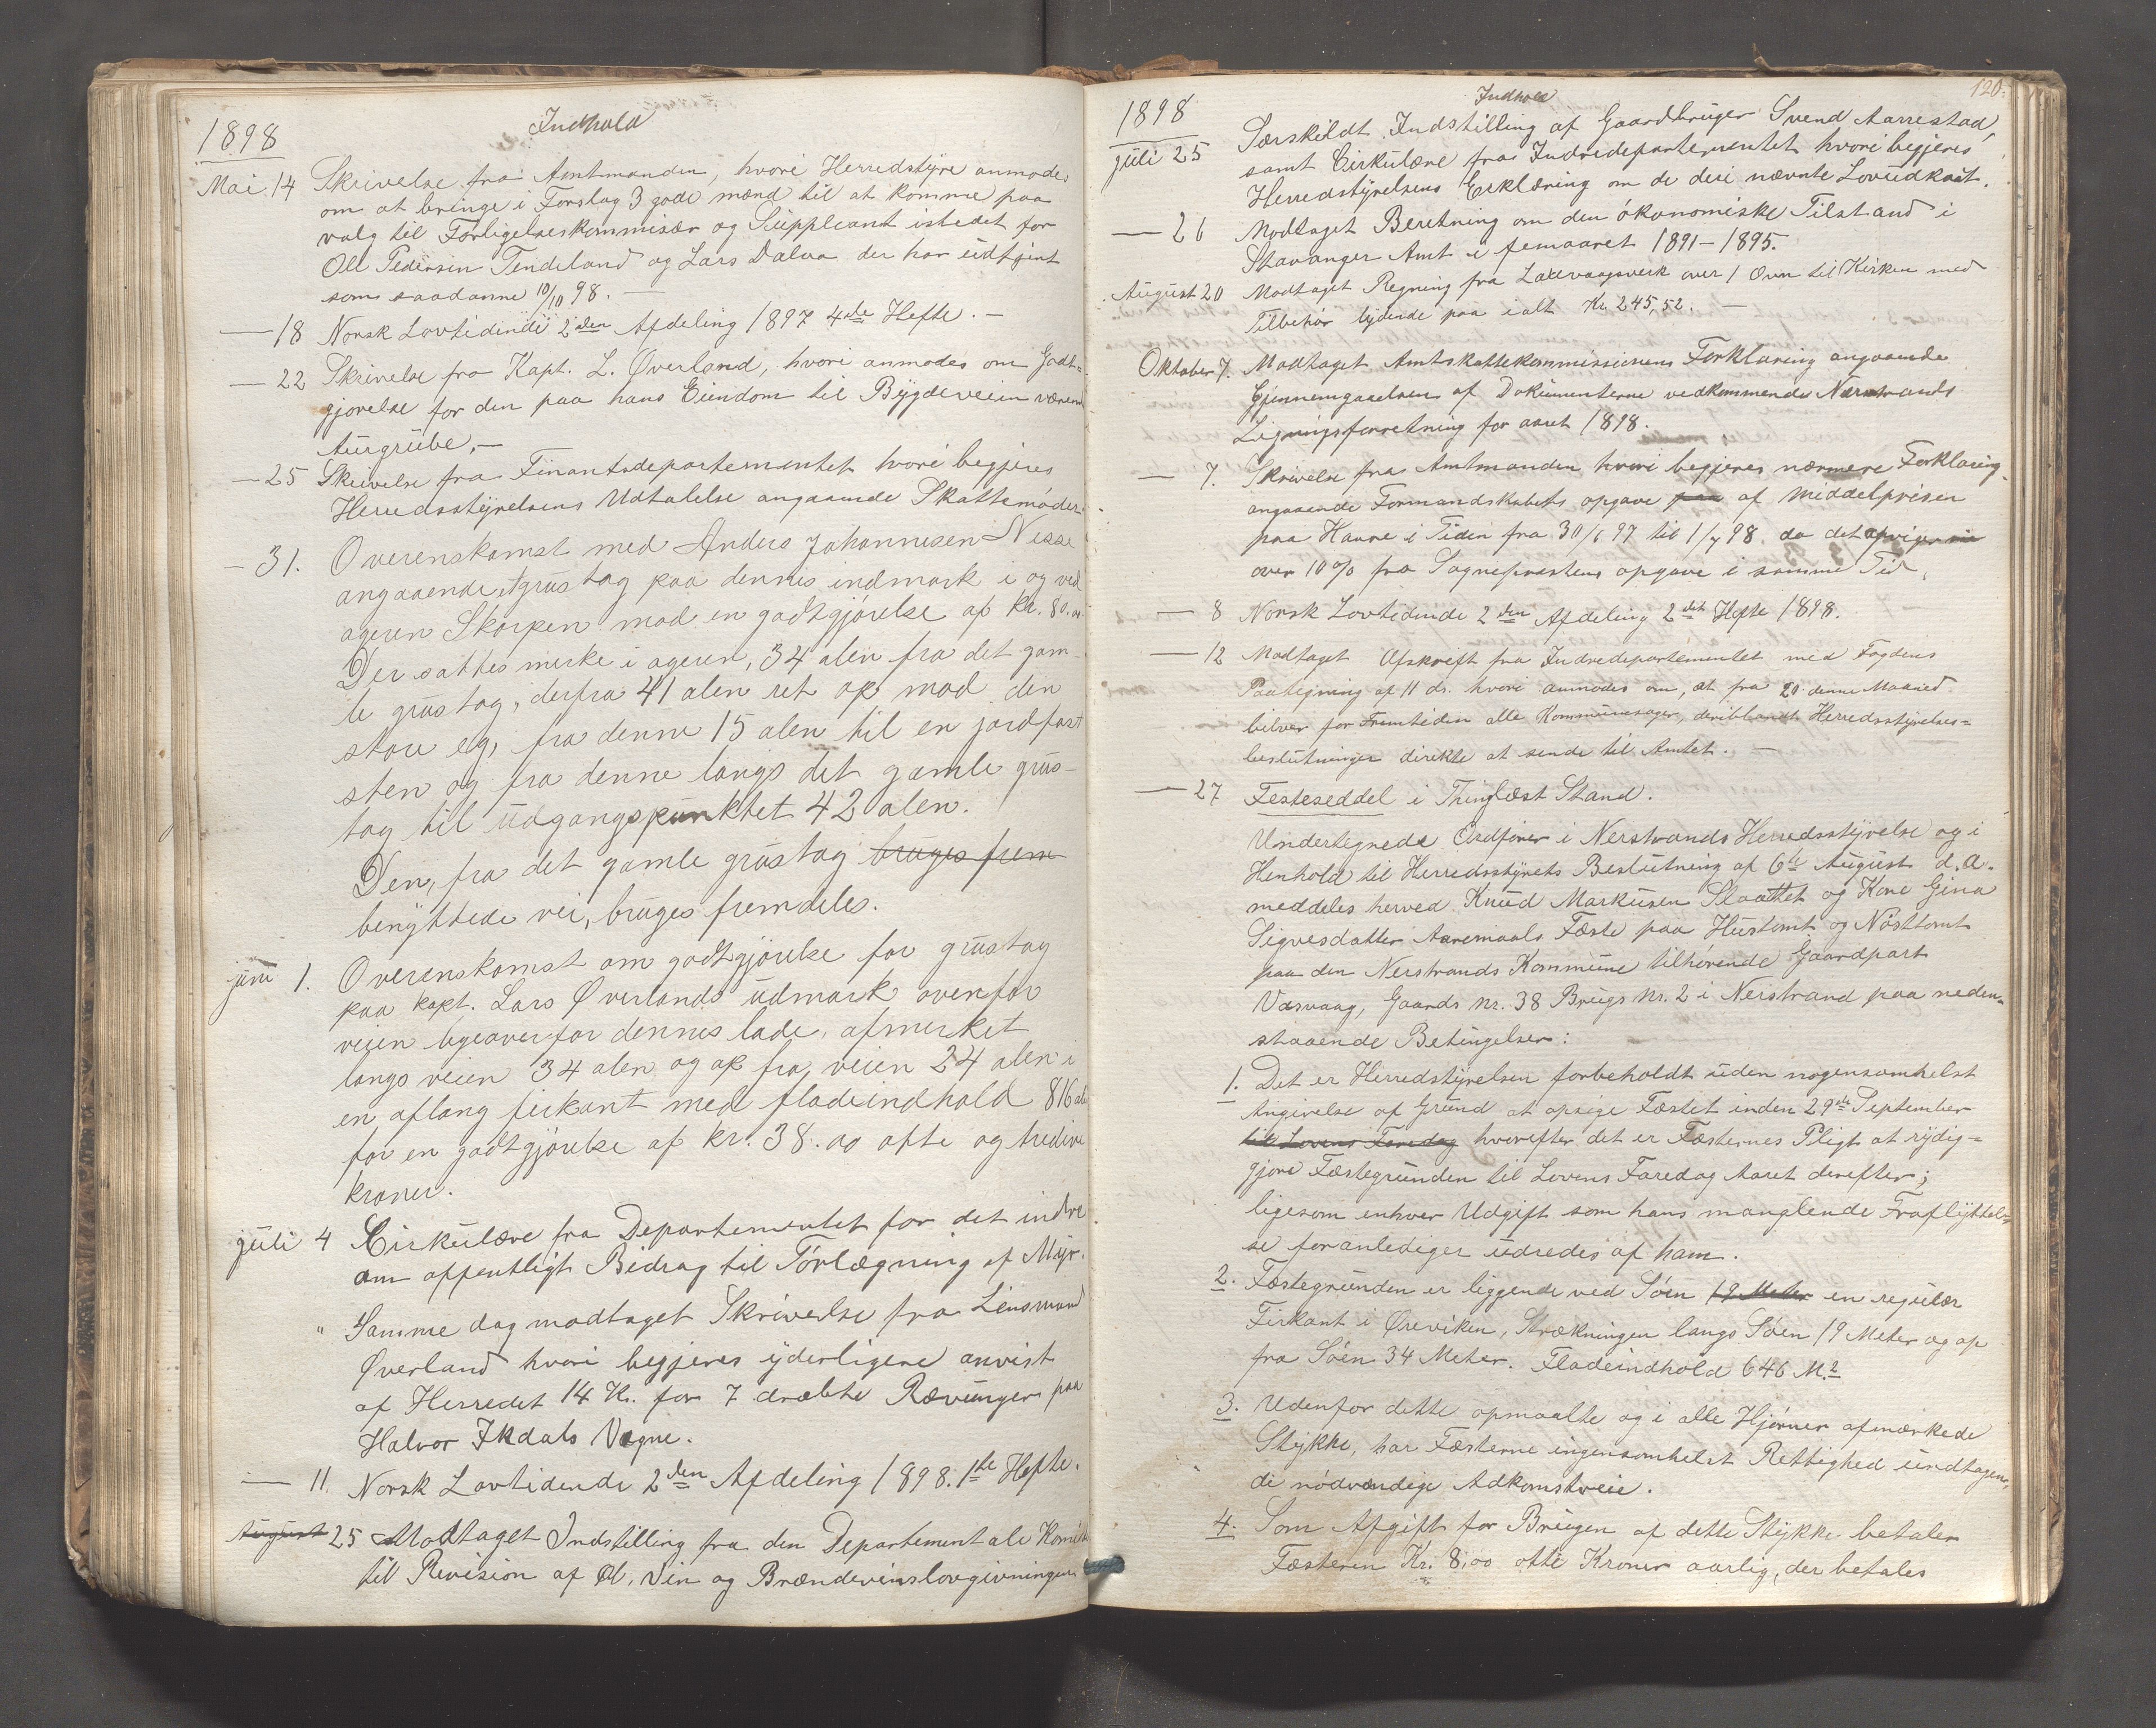 Indhold
1898
Mai 14 Skrivelse fra Amtmanden, hvori Herredstyre anmodes
om at bringe i Forslag 3 gode mænd til at komme paa
valg til Forligelseskommisær og Suppleant istedet for
Ole Pedersen Tendeland og Lars Dalva der har udtjent
som saadanne 10/10 98. —
— 18 Norsk Lovtidende 2den Afdeling 1897 4de Hefte. —
— 22 Skrivelse fra Kapt. L. Øverland, hvori anmodes om Godt-
gjørelse for den paa hans Eiendom til Bygdeveien værende
Aurgrube. —
— 25 Skrivelse fra Finantsdepartementet hvori begjeres
Herredsstyrelsens Udtalelse angaaende Skattemøder.
— 31. Overenskomst med Anders Johannesen Nesse
angaaende grustag paa dennes indmark i og ved
ageren Skorpen mod en godtgjørelse af kr. 80.00
Der sattes merke i ageren, 34 alen fra det gam-
le grustag, derfra 41 alen ret op mod den
store eg, fra denne 15 alen til en jordfast
sten og fra denne langs det gamle grus-
tag til udgangspunktet 42 alen.
Den, fra det gamle grustag bruges frem
benyttede vei, bruges fremdeles.
juni 1. Overenskomst om godtgjørelse for grustag
paa kapt. Lars Øverlands udmark ovenfor
veien ligeoverfor dennes lade, afmerket
langs veien 34 alen og op fra veien 24 alen i
en aflang firkant med fladeindhold 816 al
for en godtgjørelse af kr. 38.00 otte og tredive
kroner.
juli 4 Cirkulære fra Departementet for det indre
om offentligt Bidrag til Tørlægning af Myr.
" Samme dag modtaget Skrivelse fra Lensmand
Øverland hvori begjeres yderligere anvist
af Herredet 14 Kr. for 7 dræbte Rævunger paa
Halvor Ikdals Vegne.
— 11. Norsk Lovtidende 2den Afdeling 1898. 1ste Hefte.
August 25 Modtaget Indstilling fra den Departementale Komite
til Revision af Øl, Vin og Brændevinslovgivningen
120.
Indhold
1898
juli 25 Særskildt Indstilling af Gaardbruger Svend Aarrestad,
samt Cirkulære fra Indredepartementet hvori begjeres
Herredstyrelsens Erklæring om de deri nævnte Lovudkast.
— 26 Modtaget Beretning om den økonomiske Tilstand i
Stavanger Amt i femaaret 1891–1895.
August 20 Modtaget Regning fra Laxevaagsverk over 1 Ovn til Kirken med
Tilbehør lydende paa ialt Kr. 245,52. —
Oktober 7. Modtaget Amtskattekommissionens Forklaring angaaende
Gjennemgaaelsen af Dokumenterne vedkommende Nærstrands
Ligningsforretning for aaret 1898.
— 7. Skrivelse fra Amtmanden hvori begjeres nærmere Forklaring
angaaende Formandskabets opgave paa af Middelprisen
paa Havre i Tiden fra 30/6 97 til 1/7 98 da det afviger
over 10% fra Sognepræstens opgave i samme Tid.
— 8 Norsk Lovtidende 2den Afdeling 2det Hefte 1898.
— 12 Modtaget Afskrift fra Indredepartementet med Fogdens
Paategning af 11 ds. hvori anmodes om, at fra 20 denne Maaned
bliver for Fremtiden alle Kommunesager, deriblandt Herredsstyrelses-
beslutninger direkte at sende til Amtet. —
— 27 Festeseddel i Thinglæst Stand.
Undertegnede Ordfører i Nerstrands Herredsstyrelse og i
Henhold til Herredsstyrets Beslutning af 6te August d.A.
meddeles herved Knud Markusen Slaattet og Kone Gina
Sigvesdatter Aaremaals Fæste paa Hustomt og Nøsttomt
paa den Nerstrands Kommune tilhørende Gaardpart
Vasvaag, Gaards nr. 38 Brugs nr. 2 i Nerstrand paa neden-
staaende Betingelser:
1. Det er Herredstyrelsen forbeholdt uden nogensomhelst
Angivelse af Grund at opsige Fæstet inden 29de September
til Lovens Faredag hvorefter det er Fæsternes Pligt at rydig-
gjøre Fæstegrunden til Lovens Faredag Aaret derefter;
ligesom enhver Udgift som hans manglende Fraflyttel-
se foranlediger udredes af ham.
2. Fæstegrunden er liggende ved Søen 19 Meter en regulær
Firkant i Øreviken, Strækningen langs Søen 19 Meter og op
fra Søen 34 Meter. Fladeindhold 646 M.2
3. Udenfor dette opmaalte og i alle Hjørner afmærkede
Stykke, har Fæsterne ingensomhelst Rettighed undtagen
de nødvendige Adkomstveie.
4. Som Afgift for Brugen af dette Stykke betaler
Fæsteren Kr. 8.00 otte Kroner aarlig, der betales